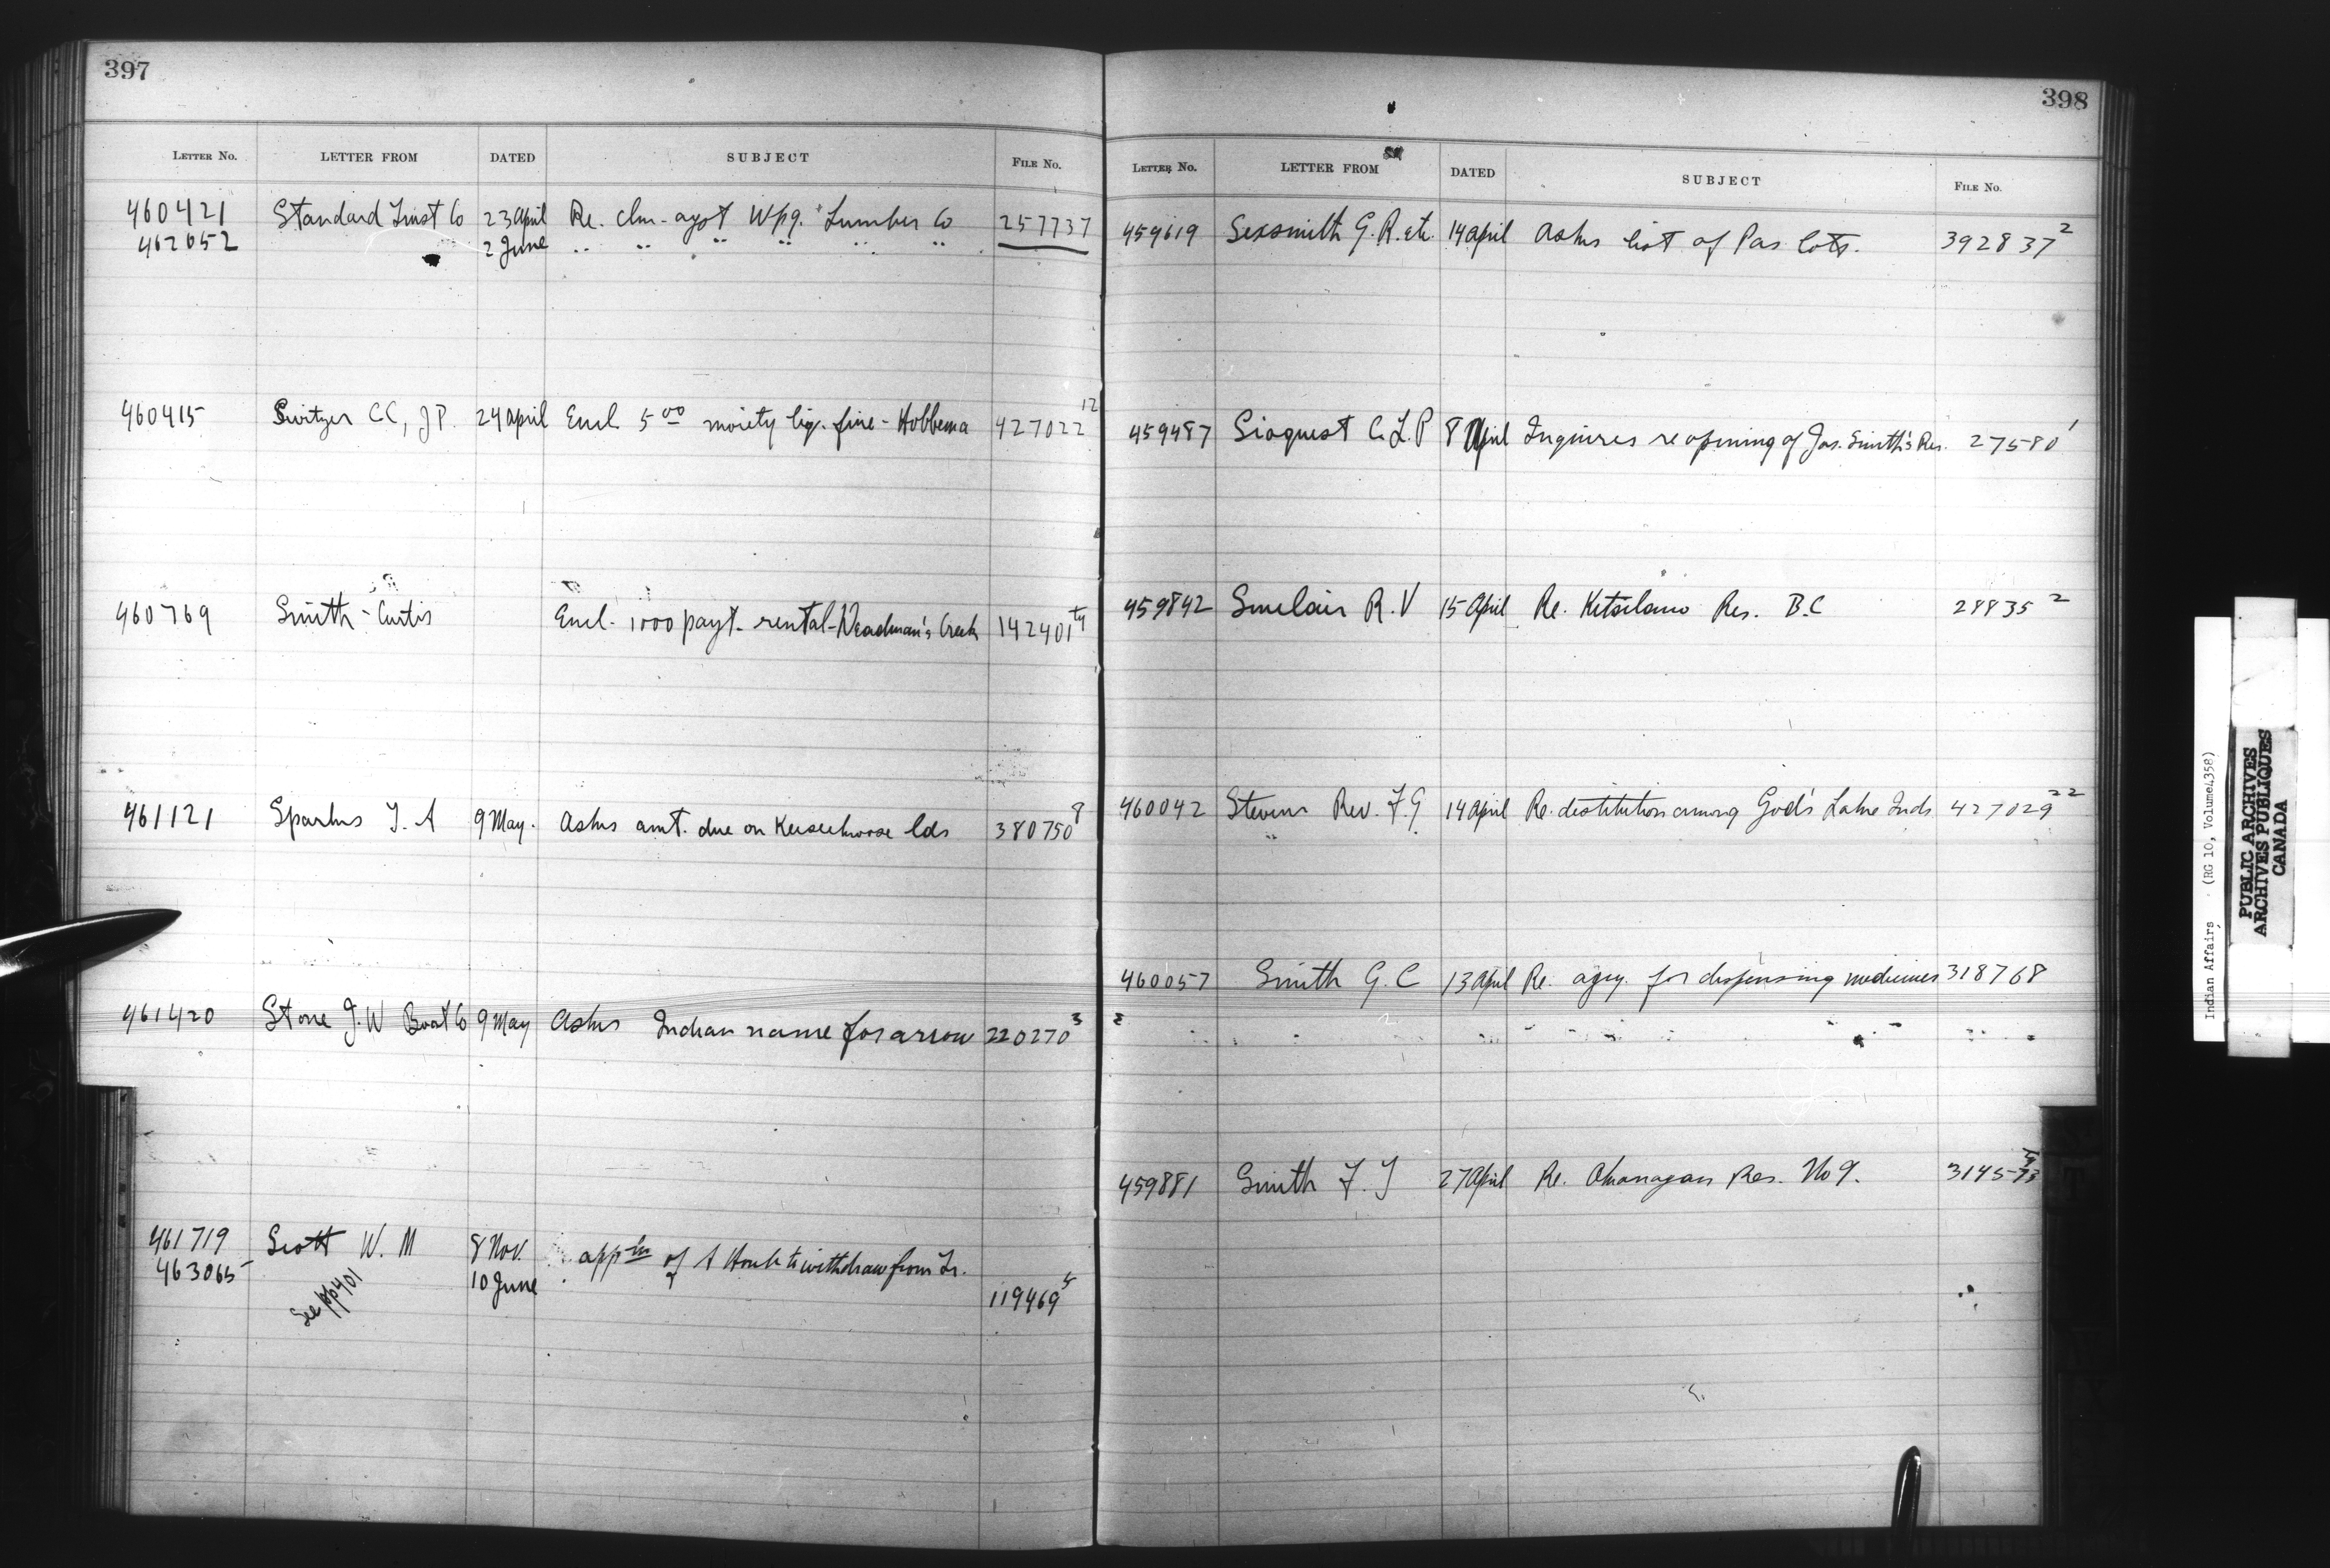 397
LETTER No. LETTER FROM DATED SUBJECT FILE No.
460421 Standard Trust Co 23 April Re. clm. agst Wpg. Lumber Co 257737
462652 2 June .. .. .. .. .. ..
460415 Switzer CC, JP. 24 April Encl 5 00 moiety liq. fine - Hobbema 427022 12
460769 Smith - Curtis Encl. 1000 payt. rental - Deadman's Creek 142401
461121 Sparks J. A 9 May. Asks amt. due on lds 380750 8
461420 Stone J. W Boat Co 9 May Asks Indian name for arrow 220270 3
461719 Scott W. M 8 Nov. appln of A to withdraw from Tr.
463065 10 June 119469
See pp401
398
LETTER No. LETTER FROM DATED SUBJECT FILE No.
459619 Sexsmith G. R. etc 14 April Asks list of Pas lots. 392837 2
459487 Sioquest C. L. P 8 April Inquires re opening of Jas. Smith's Res. 27580 1
459842 Sinclair R. V 15 April Re. Kitsilano Res. B.C 28835 2
460042 Stevens Rev. F. G 14 April Re. destitution among God's Lake Inds 427029 22
460057 Smith G. C 13 April Re. agcy. for dispensing medicines 318768
459881 Smith F. J 27 April Re. Okanagan Res. No 9.
Indian Affairs. (RG 10, Volume 4358)
PUBLIC ARCHIVES
ARCHIVES PUBLIQUES
CANADA